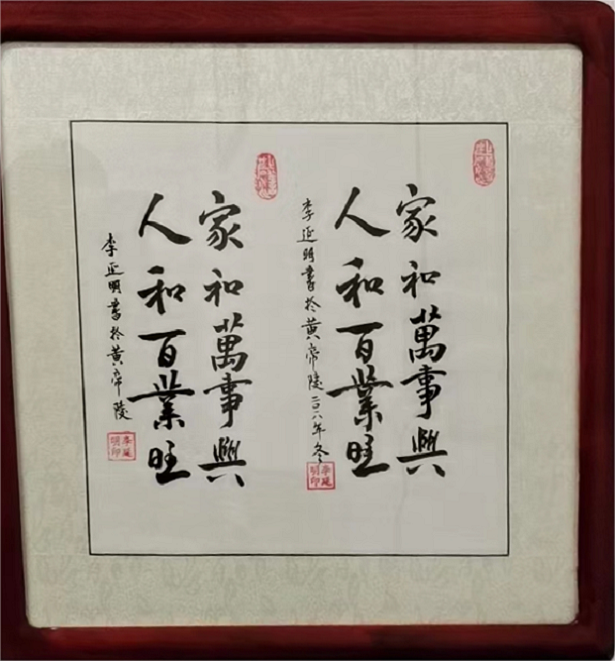 家和萬事興
人和百業旺
李延明書於黃帝陵二〇一八年冬
李延明印
家和萬事興
人和百業旺
李延明書於黃帝陵
李延明印